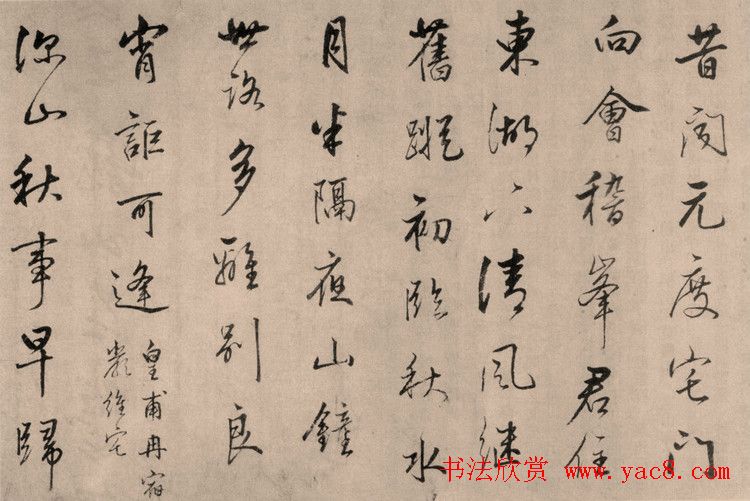 昔聞元度宅門
向會稽峯君住
東湖下清風繼
舊蹤初臨秋水
月半隔夜山鐘
世路多離別良
宵詎可逢
皇甫冉宿
嚴維宅
深山秋事早歸
书法欣赏 www.yac8.com